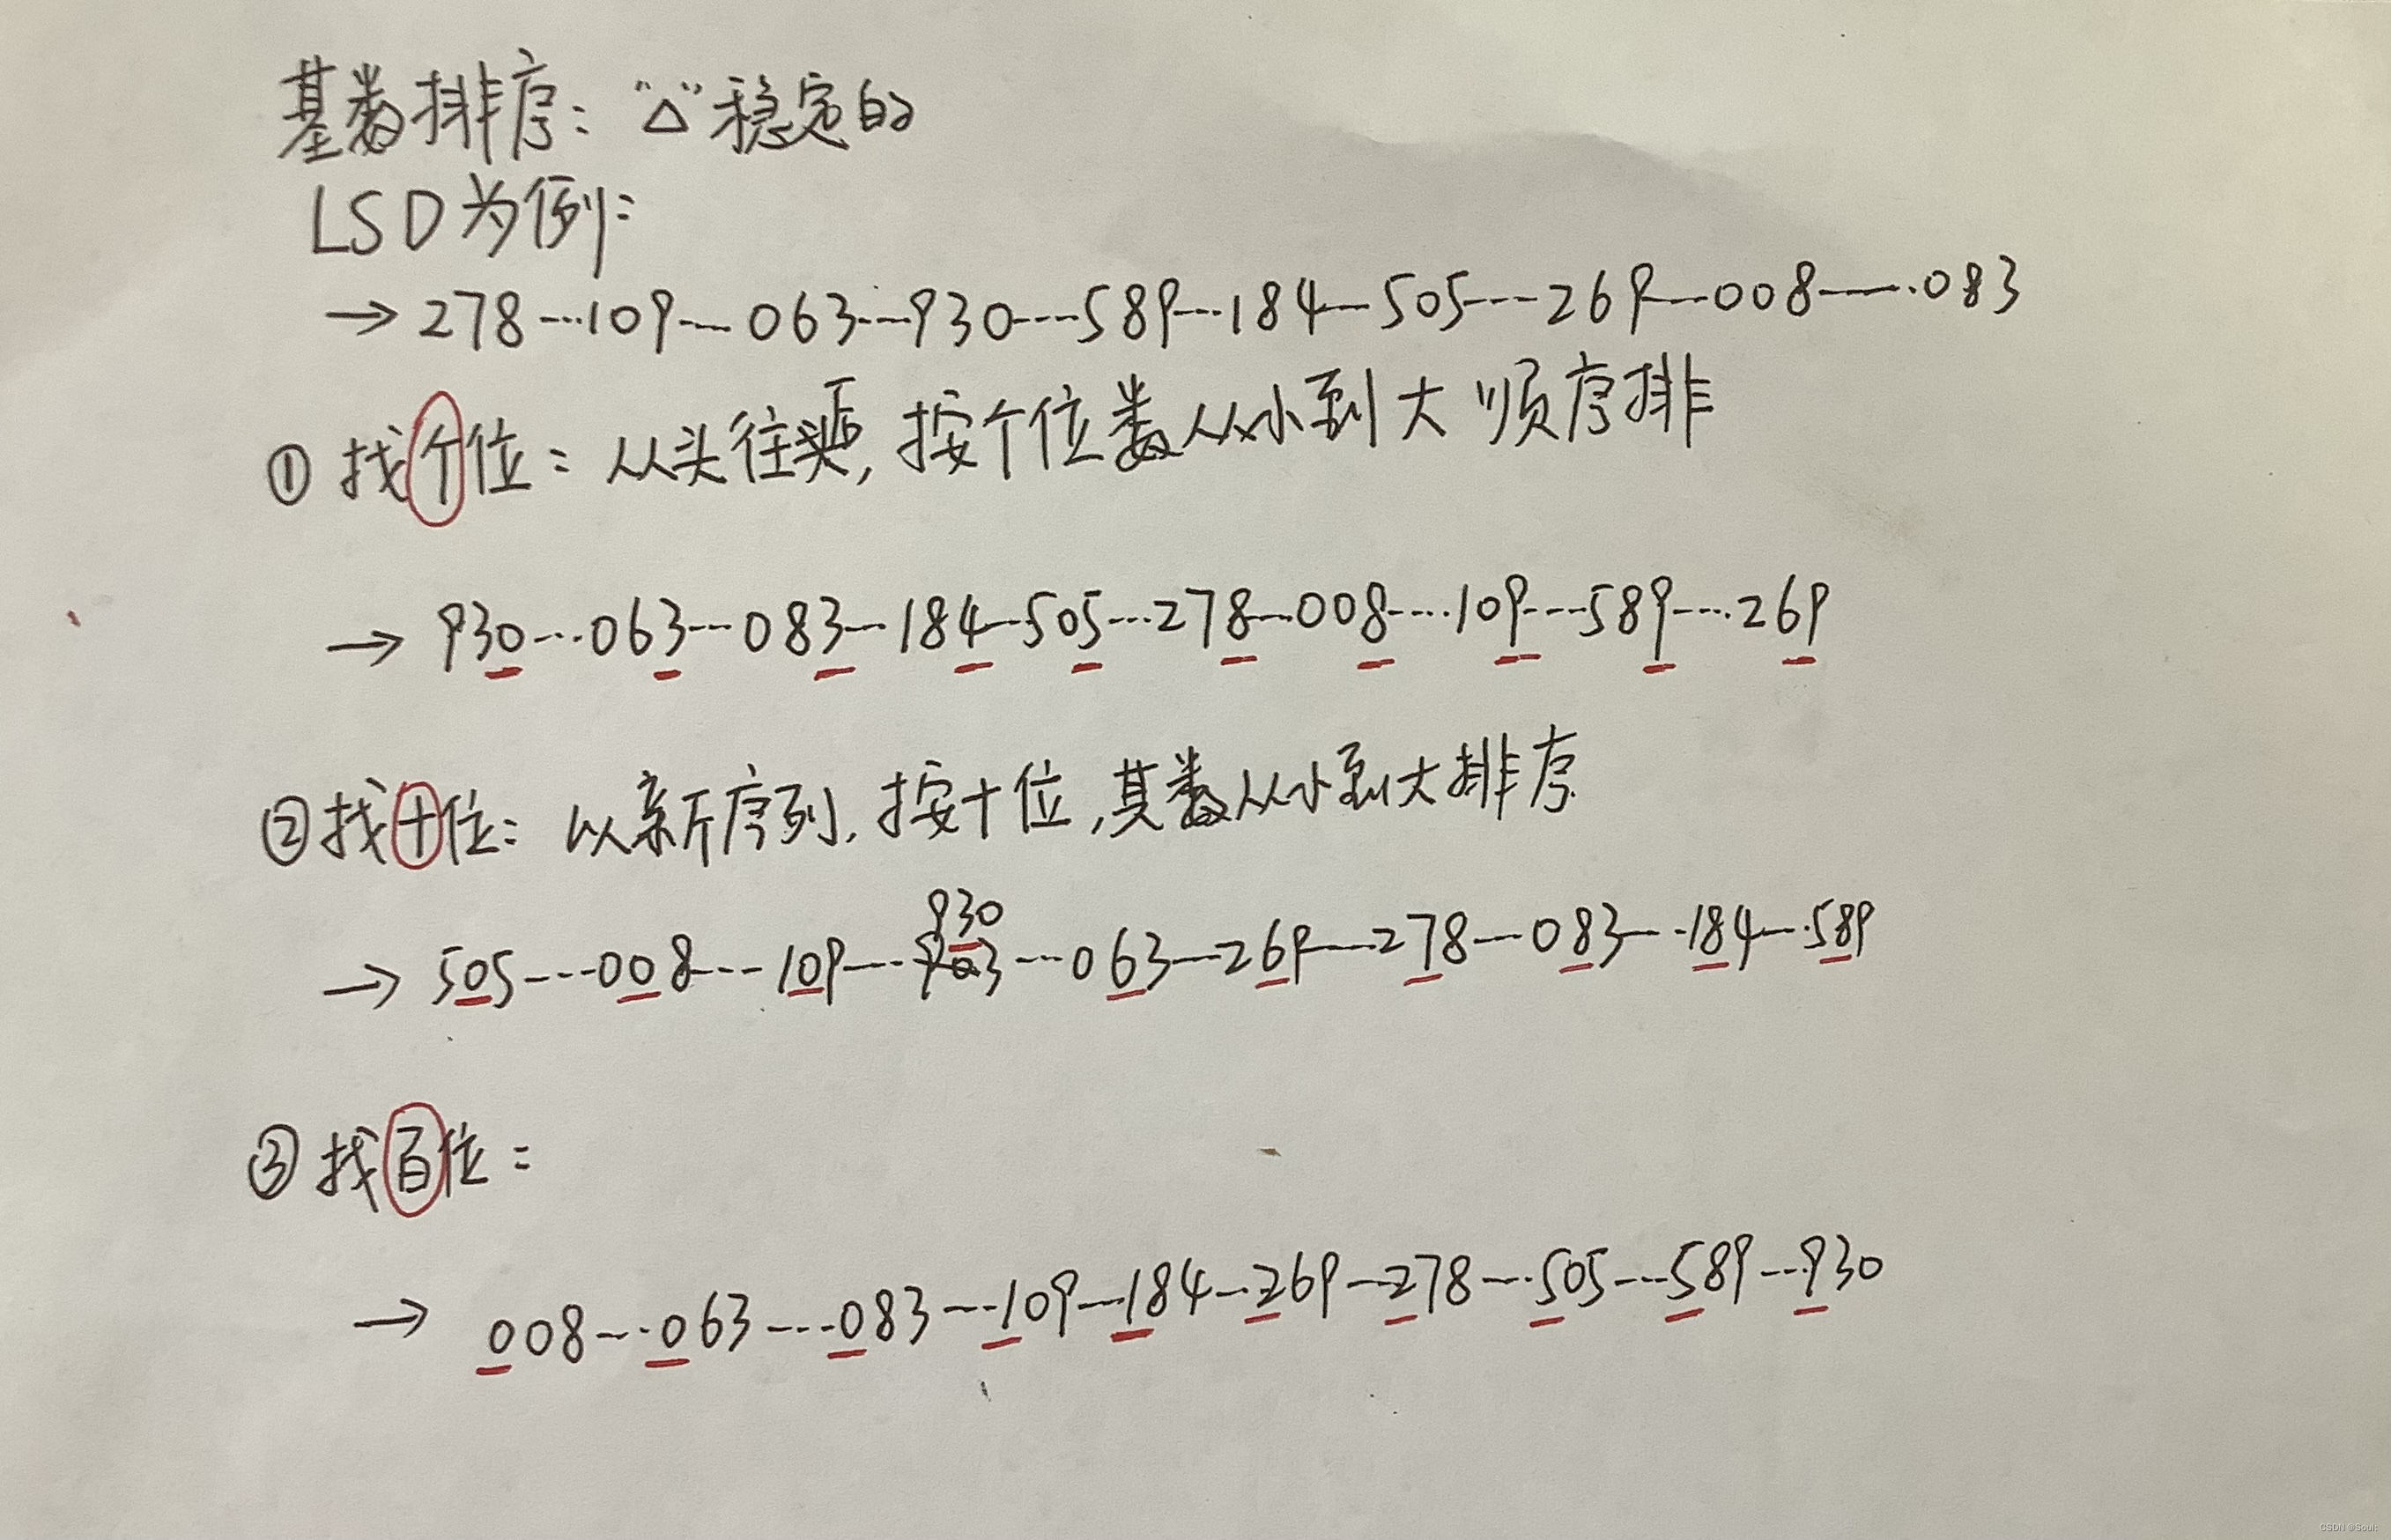 基数排序："△"稳定的
LSD为例：
→278---109---063---930---589---184---505---269---008---083
① 找个位：从头往尾,按个位数从小到大顺序排
→930---063---083---184---505---278---008---109---589---269
②找十位：以新序列,按十位,其数从小到大排序
→505---008---109---930---063---269---278---083---184---589
③ 找百位：
→008---063---083---109---184---269---278---505---589---930